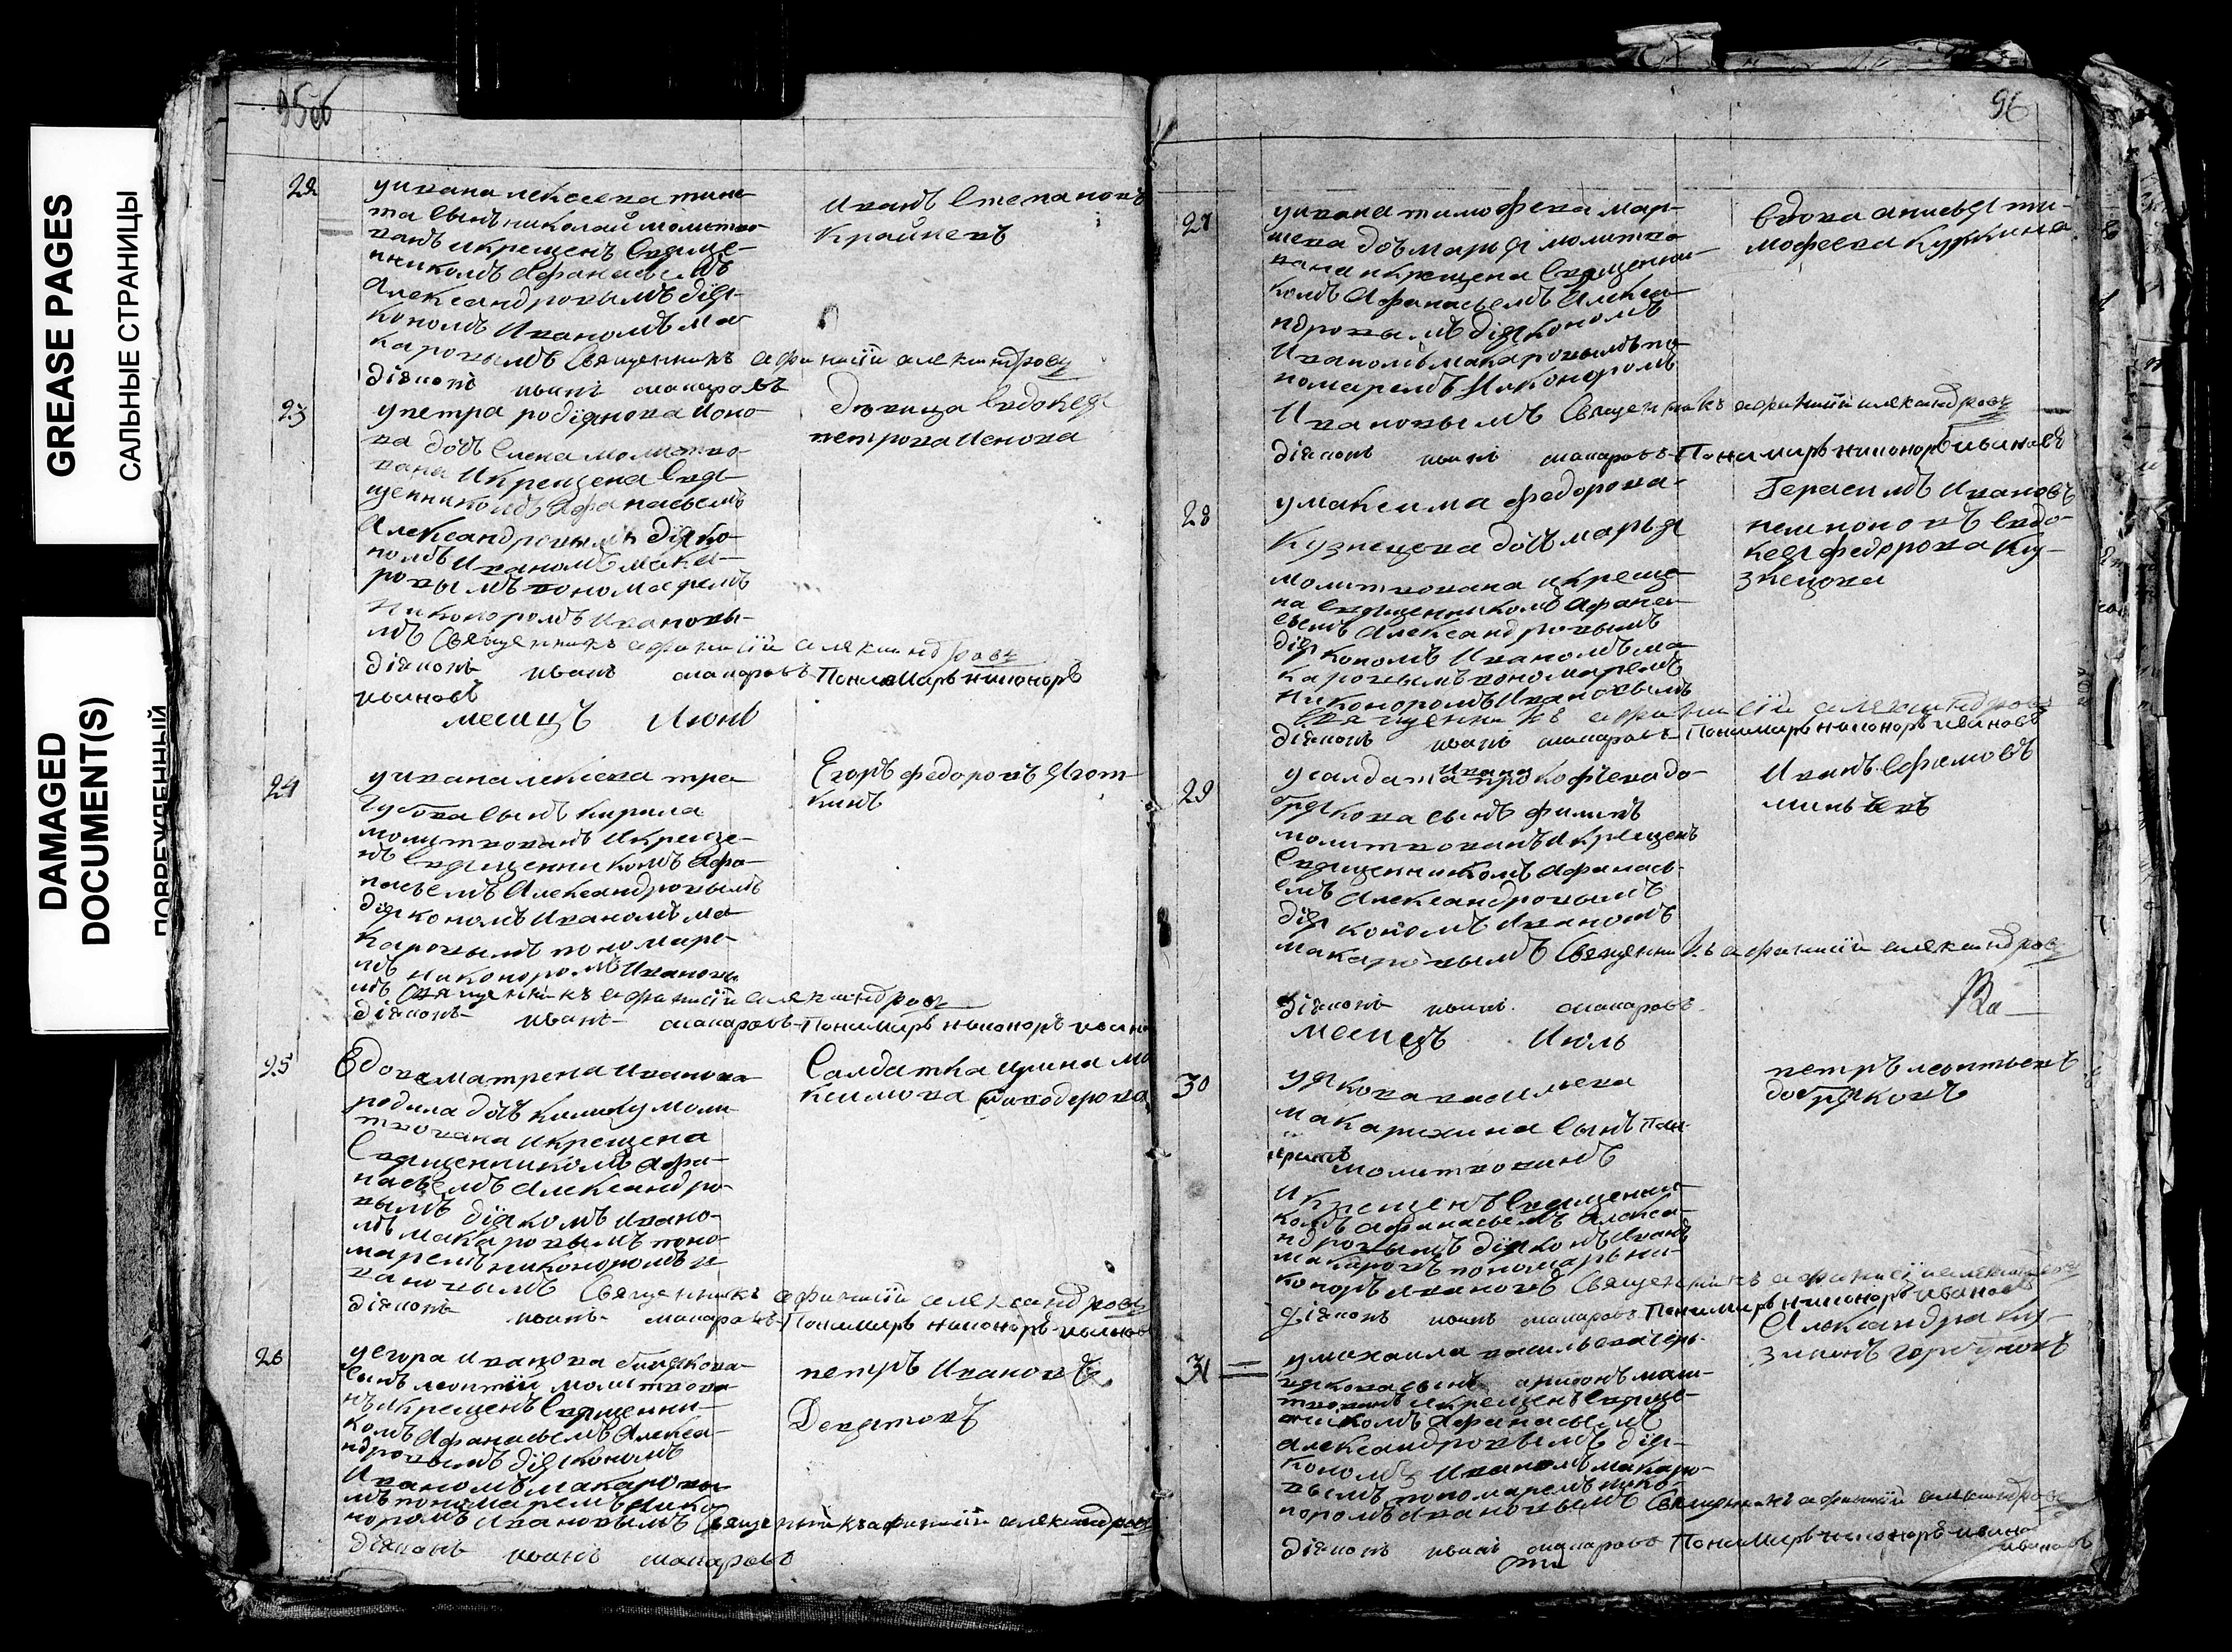 GREASE PAGES
САЛЬНЫЕ СТРАНИЦЫ
DAMAGED
DOCUMENT(S)
ПОВРЕЖДЕННЫЙ
95об
22
уивана лексеева
та сынъ николай молитво
ванъ икрещенъ Свяще-
нникомъ Афанасьемъ
Александровымъ дія-
кономъ Иваномъ Ма
каровымъ Священникъ афанасій александровъ
діяконъ иванъ макаровъ
Иванъ Степановъ
Крайневъ
23
упетра родіянова Ионо-
ва дочь Елена молитво-
вана Икрещена Свя-
щенникомъ Афанасьемъ
Александровымъ діяко-
номъ Иваномъ мака-
ровымъ пономаремъ
Никоноромъ Ивановы-
мъ Священникъ афанасій александровъ
діяконъ иванъ макаровъ Пономарь никоноръ
ивановъ
девица Евдокея
петрова Ионова
месицъ Июнь
24
уивана лексеева тре
губова сынъ кирила
молитвованъ Икреще-
нъ Священникомъ Афа-
насьемъ Александровымъ
діякономъ Иваномъ ма-
каровымъ пономаре-
мъ никоноромъ Ивановы
мъ Священникъ афанасій александровъ
діяконъ иванъ макаровъ Пономарь никоноръ ивано
Егоръ федоровъ Ягот-
кинъ
25
Вдова матрена Иванова
родила дочь молит-
твована Икрещена
Священникомъ Афа-
насьемъ Александро-
вымъ діякомъ Ивано-
мъ макаровымъ поно-
маремъ никоноромъ и-
вановымъ Священникъ афанасій александровъ
діяконъ иванъ макаровъ Пономарь никоноръ иванов
Салдатка ирина ма
ксимова
26
уегора Иванова
сынъ леонтий молитвова-
нъ икрещенъ Священни-
комъ Афанасьемъ Алекса-
ндровымъ діякономъ
Иваномъ макаровы-
мъ пономаремъ Нико-
норомъ Ивановымъ Священникъ афанасій александровъ
діяконъ иванъ макаровъ
петръ Ивановъ
Девятовъ
96
27
уивана тимофеева мар-
дочь марья молитво
вана икрещена Священни-
комъ Афанасьемъ Алекса-
ндровымъ діякономъ
Иваномъ макаровымъ по-
номаремъ Никоноромъ
Ивановымъ Священникъ афанасій александровъ
діяконъ иванъ макаровъ Пономарь никоноръ ивановъ
Вдова анисья ти-
мофеева Куркина
28
умаксима федорова
Кузнецова дочь марья
молитвована икреще-
на Священникомъ Афана-
сьемъ Александровымъ
діякономъ Иваномъ ма-
каровымъ пономаремъ
Никоноромъ Ивановымъ
Священникъ афанасій александровъ
діяконъ иванъ макаровъ Пономарь никоноръ ивановъ
Герасимъ Ивановъ
Евдо-
кея федорова Ку-
знецова
29
усалдата Ивана прокофьева до-
брякова сынъ филипъ
молитвованъ Икрещенъ
Священникомъ Афанась-
емъ Александровымъ
діякономъ Иваномъ
макаровымъ Священникъ афанасій александровъ
діяконъ иванъ макаровъ
Иванъ Ефимовъ
миньевъ
месицъ Июль
30
уякова васильева
макарихина сынъ Пан-
кратъ молитвованъ
Икрещенъ Священни-
комъ Афанасьемъ Алекса-
ндровымъ діяконъ Иванъ
макаровъ пономарь ни-
коноръ Ивановъ Священникъ афанасій александровъ
діяконъ иванъ макаровъ Пономарь никоноръ ивановъ
петръ леонтьевъ
добряковъ
31
умихаила васильева
сынъ молит-
твованъ икрещенъ Свяще-
нникомъ Афанасьемъ
Александровымъ дія-
кономъ Иваномъ макаро-
вымъ пономаремъ нико-
норомъ Ивановымъ Священникъ афанасій александровъ
діяконъ иванъ макаровъ Пономарь никоноръ
ивановъ
Александра ку-
зминъ горбуновъ